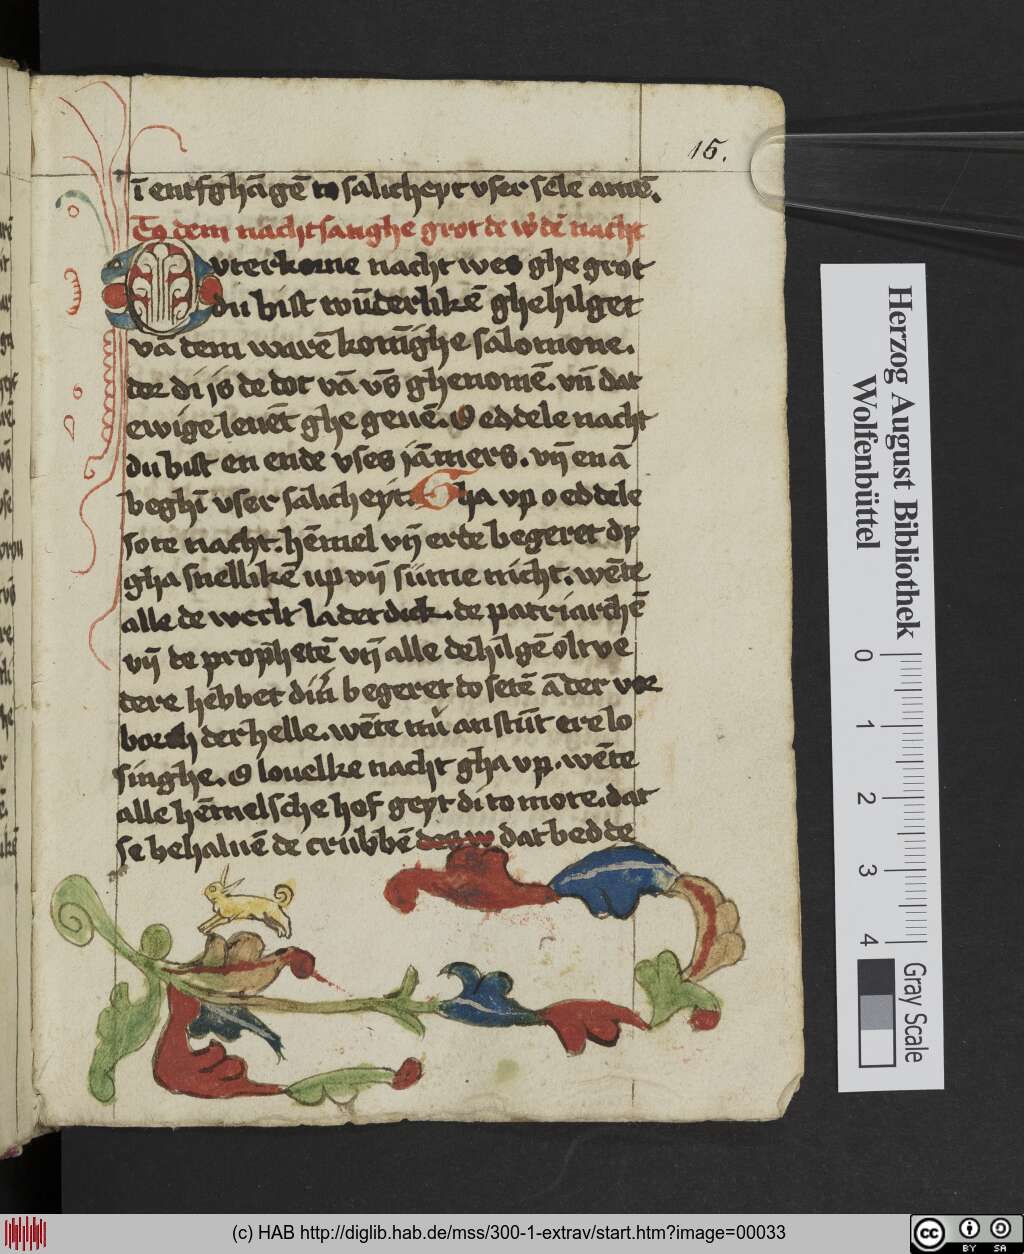 15.
ī entfghāgē to salicheyt vser sēle amē.
To dem nachtsanghe grot de w̄dē nacht
Ovterkorne nacht wes ghe grot
du bist wūderlikē ghehilget
vā dem warē konīghe salomone.
der di is de dot vā vs̄ ghenomē. vn̄ dat
ewige leuēt ghe geuē. O eddele nacht
du bist en ende vses iāmers. vn̄ en ā
beghī vser salicheyt. Gha vp o eddele
sote nacht. hēmel vn̄ erde begeret dy
gha snellikē up vn̄ sume nicht. wēte
alle de werlt ladet dick. de patriarchē
vn̄ de prophetē vn̄ alle de hilgē oltve
dere hebbet begeret to setē ā der vor
borch der helle. wēte nu an stūt ere lo
singhe. O louelke nacht gha vp. wēte
alle hēmelsche hof geyt di to mote. dat
se behaluē de crubbē dat bedde
Herzog August Bibliothek
Wolfenbüttel
0 1 2 3 4
Gray Scale
(c) HAB http://diglib.hab.de/mss/300-1-extrav/start.htm?image=00033
cc BY SA